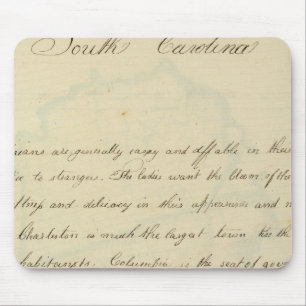 South Carolina
nians are generally easy and affable in their
ita to strangers. The ladies want the bloom of the
ftness and delicacy in their appearance and
Charleston is much the largest town in the
habitants. Columbia is the seat of gov